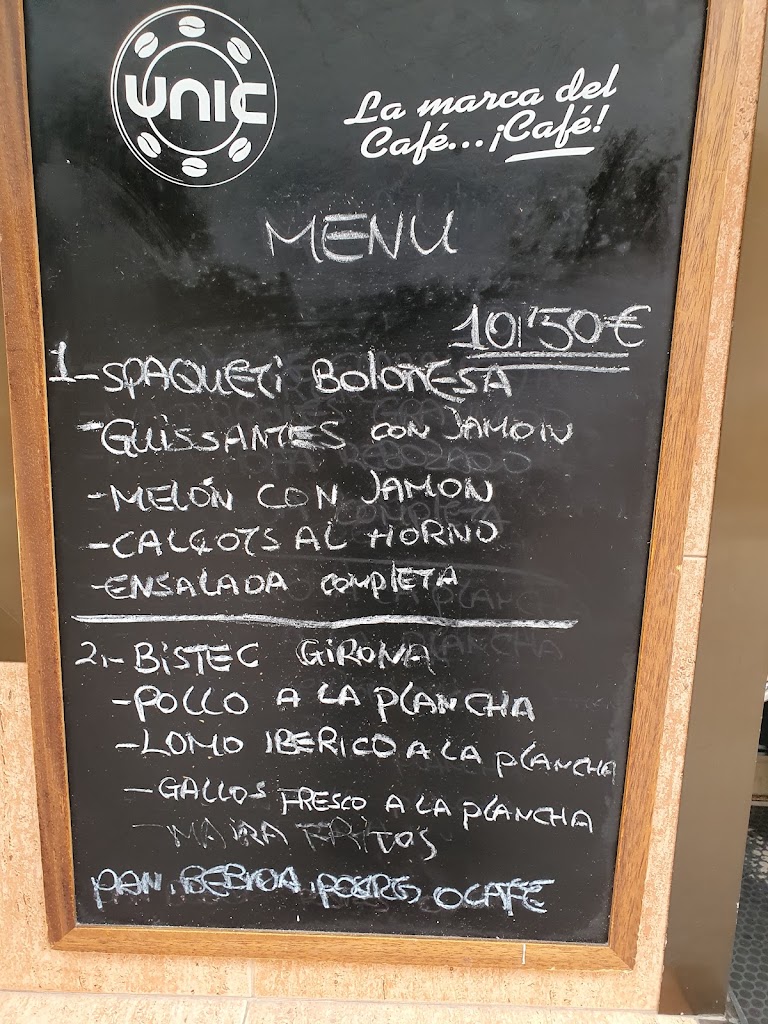 UNIC
La marca del
Café...¡Café!
MENU
10'50€
1-SPAQUETi BOLOÑESA
-GUISSANTES CON JAMON
-MELÓN CON JAMON
-CALÇOTS AL HORNO
-ENSALADA COMPLETA
2,-BiSTEC GiRONA
-POLLO A LA PLANCHA
-LOMO IBERICO A LA PLANCHA
-GALLOS FRESCO A LA PLANCHA
PAN, BEBIDA, O CAFE